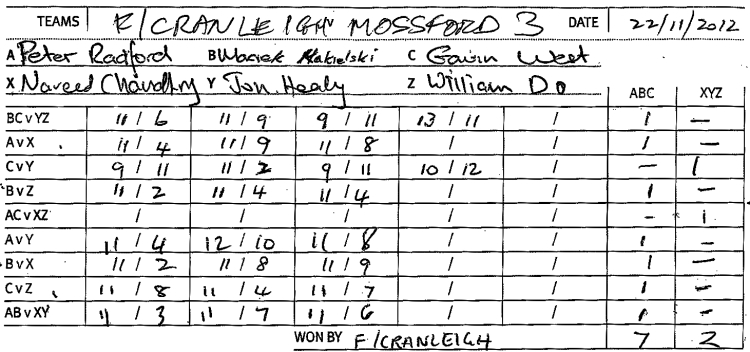 TEAMS F/CRANLEIGH MOSSFORD 3 DATE 22/11/2012
A Peter Radford B Maciek Makielski C Gavin West
X Naveed Chaudhry Y Jon Healy Z William Do ABC XYZ
BC v YZ 11 / 6 11 / 9 9 / 11 13 / 11 / 1 –
A v X 11 / 4 11 / 9 11 / 8 / / 1 –
C v Y 9 / 11 11 / 2 9 / 11 10 / 12 / – 1
B v Z 11 / 2 11 / 4 11 / 4 / / 1 –
AC v XZ / / / / / – 1
A v Y 11 / 4 12 / 10 11 / 8 / / 1 –
B v X 11 / 2 11 / 8 11 / 9 / / 1 –
C v Z 11 / 8 11 / 4 11 / 7 / / 1 –
AB v XY 11 / 3 11 / 7 11 / 6 / / 1 –
WON BY F/CRANLEIGH 7 2